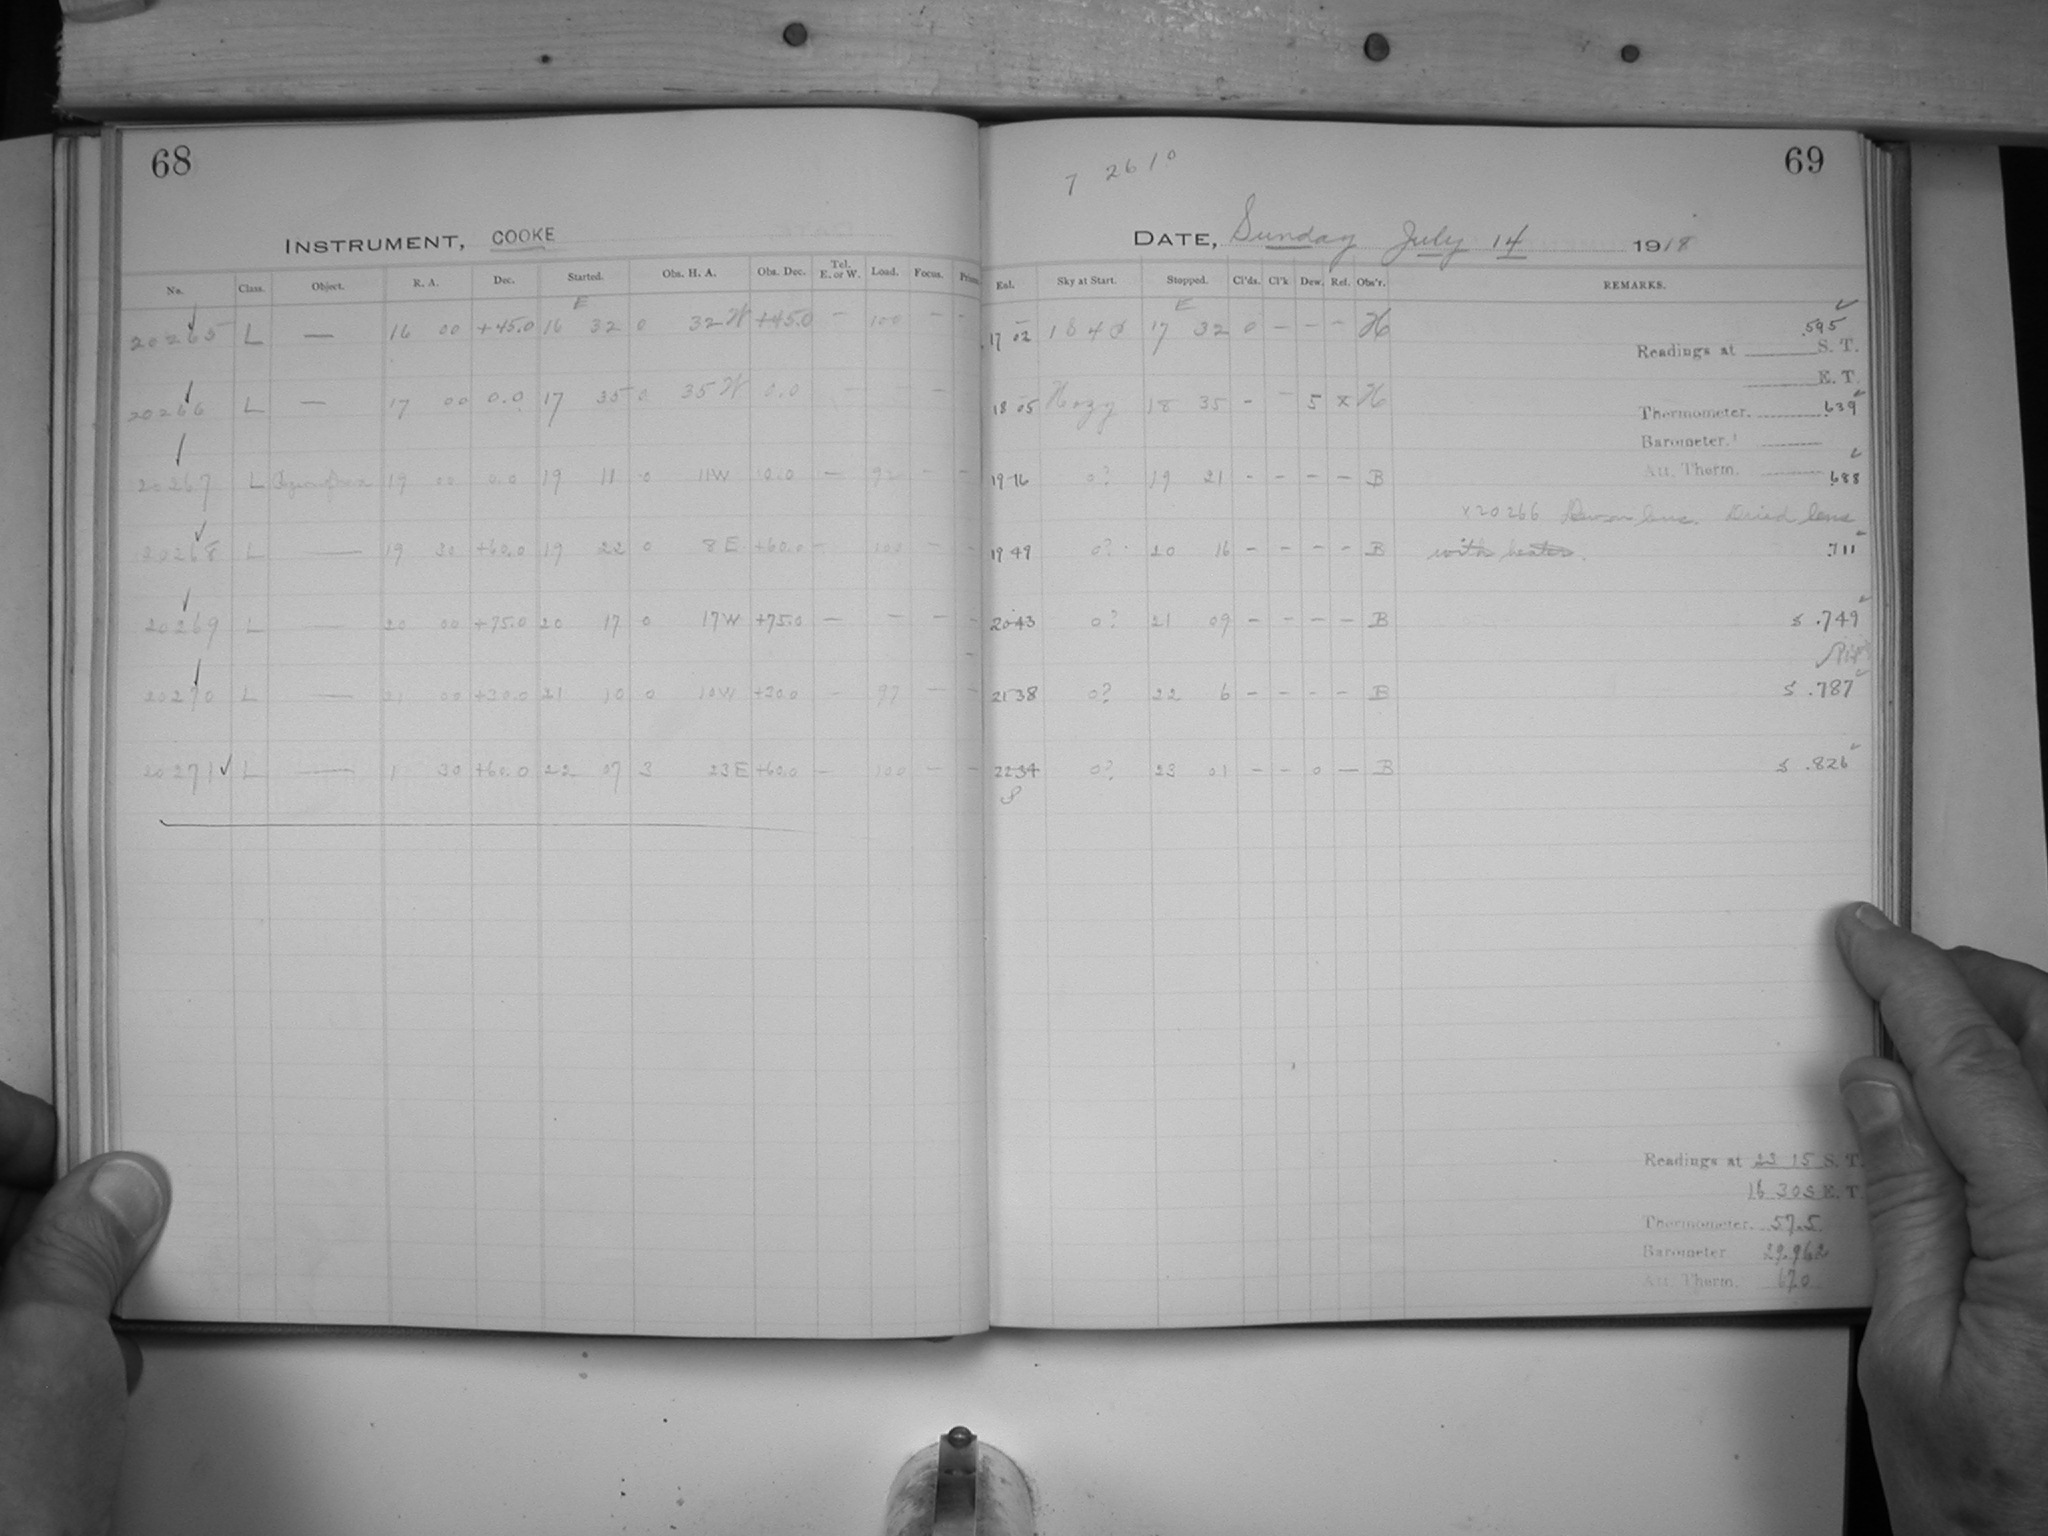 68
INSTRUMENT, COOKE
No. Class. Object. R. A. Dec. Started. Obs. H. A. Obs. Dec. Tel. E. or W. Load. Focus.
E
20265 L — 16 00 +45.0 16 32 0 32 W +45.0 — 100 — —
20266 L — 17 00 0.0 17 35 0 35 W 0.0 — — —
20267 L 19 00 0.0 19 11 0 11W 0.0 — 92 — —
20268 L — 19 30 +60.0 19 22 0 8 E +60.0 — 100 — —
20269 L — 20 00 +75.0 20 17 0 17W +75.0 — — — —
20270 L — 21 00 +30.0 21 10 0 10W +30.0 — 97 — —
20271 L — 1 30 +60.0 22 07 3 23 E +60.0 — 100 — —
69
7 26 10
DATE, Sunday July 14 1918
Sky at Start. Stopped. Cl'ds. Cl'k Dew. Ref. Obs'r. REMARKS.
E
17 02 17 32 0 — — — H .595
Readings at S. T.
E. T.
18 05 Hazy 18 35 - - 5 x H
Thermometer. .639
Barometer.
Att. Therm. .688
19 16 0? 19 21 - - - - B
x20266 Dew on lens. Dried lens
with heater.
19 49 0? 20 16 - - - - B .711
20 43 0? 21 09 - - - - B s .749
21 38 0? 22 6 - - - - B s .787
22 34 0? 23 01 - - 0 - B s .826
Readings at 23 15 S. T.
16 30 S E. T.
Thermometer. 57.5
Barometer 29.962
Att. Therm. 620